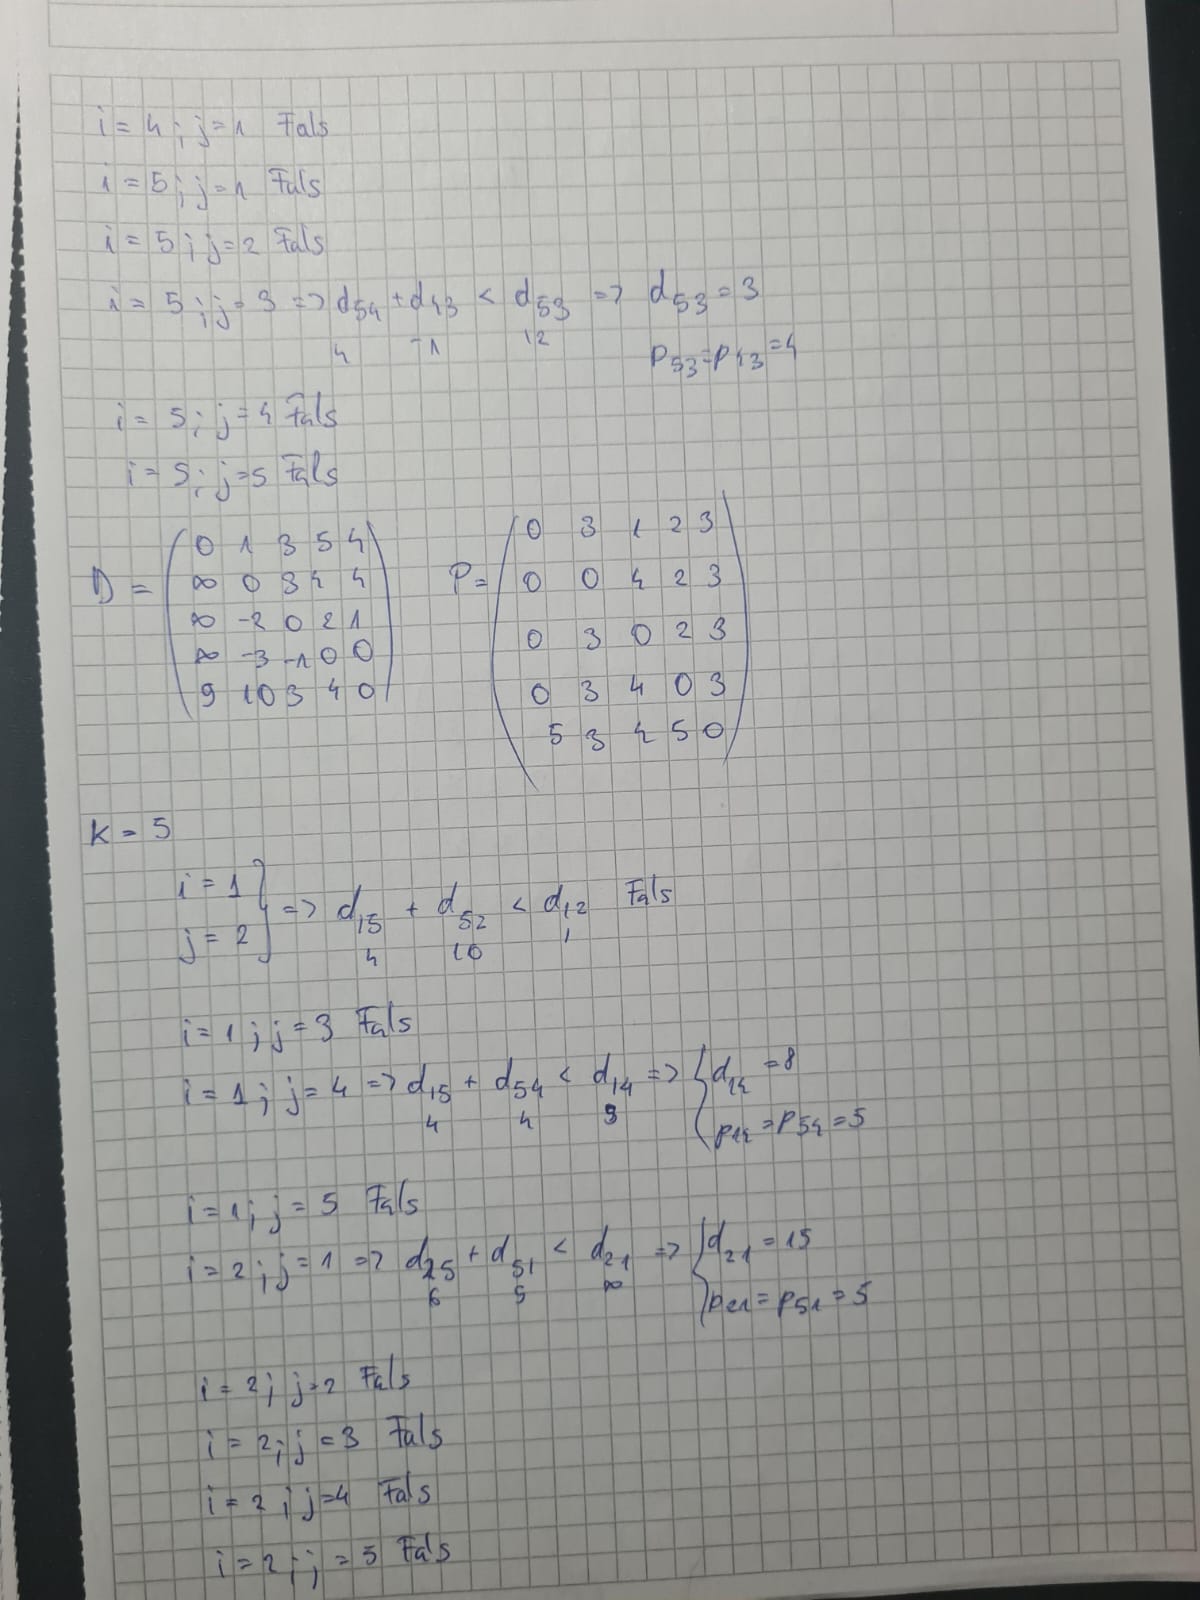 i = 4 ; j = 1 Fals
i = 5 ; j = 1 Fals
i = 5 ; j = 2 Fals
i = 5 ; j = 3 => d54 + d43 < d53 => d53 = 3
4 -1 12 p53 = p43 = 4
i = 5 ; j = 4 Fals
i = 5 ; j = 5 Fals
D = ( 0 1 3 5 4 ) P = ( 0 3 1 2 3 )
∞ 0 3 4 4 0 0 4 2 3
∞ -2 0 2 1 0 3 0 2 3
∞ -3 -1 0 0 0 3 4 0 3
9 10 3 4 0 5 3 4 5 0
K = 5
i = 1
j = 2 } => d15 + d52 < d12 Fals
4 10 1
i = 1 ; j = 3 Fals
i = 1 ; j = 4 => d15 + d54 < d14 => { d14 = 8
4 4 9 p14 = p54 = 5
i = 1 ; j = 5 Fals
i = 2 ; j = 1 => d25 + d51 < d21 => { d21 = 15
6 9 ∞ p21 = p51 = 5
i = 2 ; j = 2 Fals
i = 2 ; j = 3 Fals
i = 2 ; j = 4 Fals
i = 2 ; j = 5 Fals